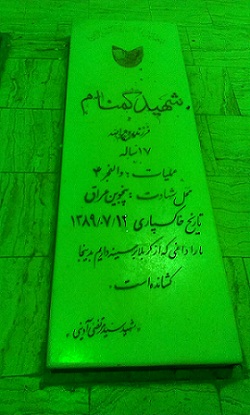 شهید گمنام
فرزند روح الله
۱۷ ساله
عملیات: والفجر ۴
محل شهادت: پنجوین عراق
تاریخ خاکسپاری ۱۳۸۹/۰۷/۱۹
ما را داغی که از کربلا بر سینه داریم بدینجا
کشانده است.
«شهید سید مرتضی آوینی»